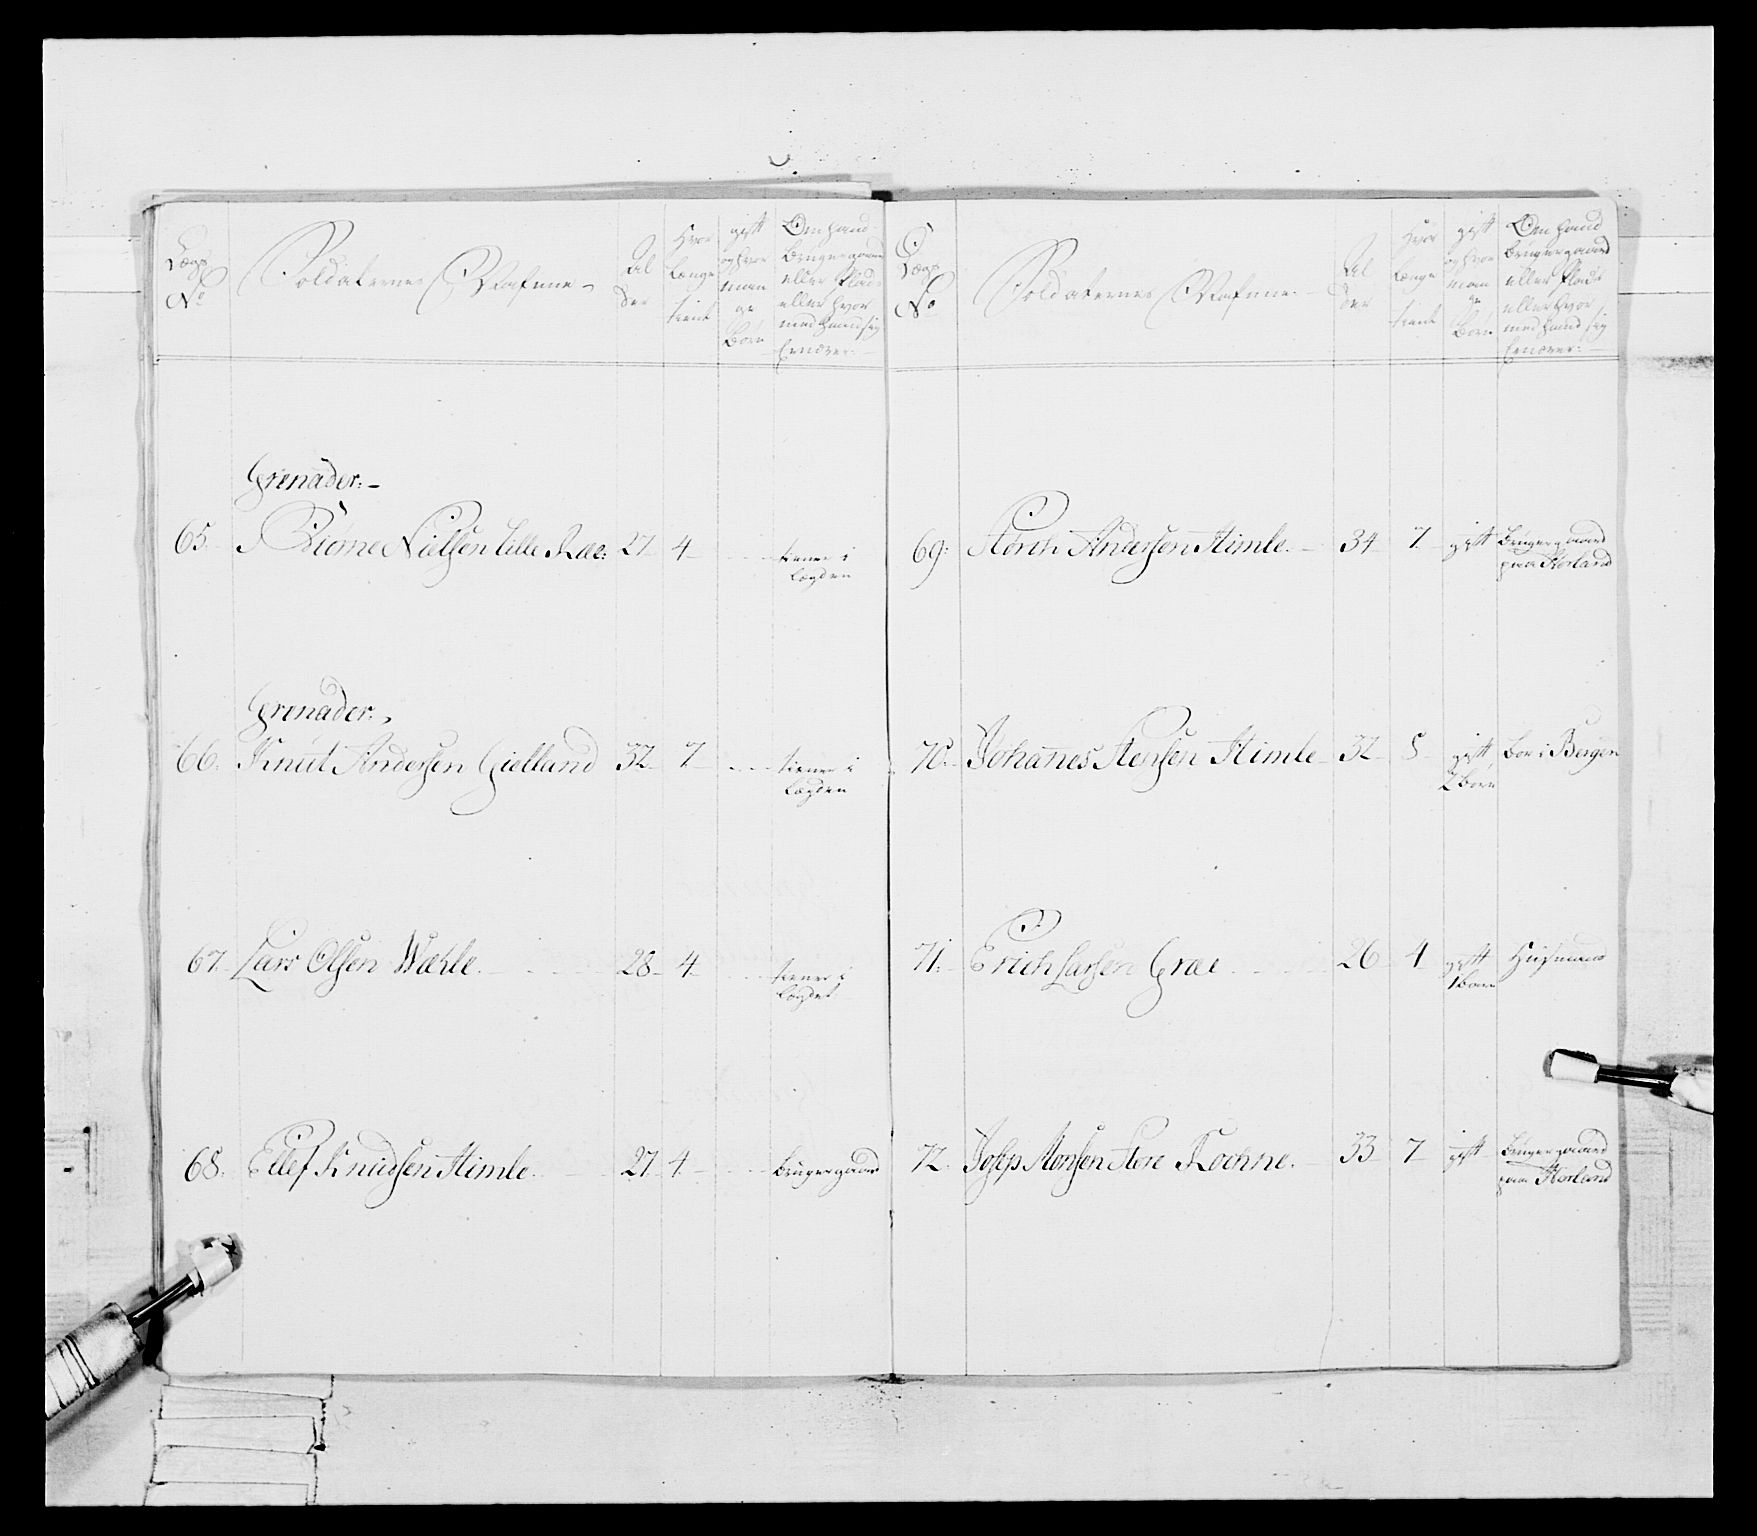 Lægs No
Soldaternes Nafne
Al der
Hvor længe tient
gift og hvor man ge Børn
Om hand bruger gaard eller Plads eller hvor med hand sig Ernærer
Grenader:
65. Biørne Nielsen Lille Ræe: 27 4 tiener i Lægden
Grenader:
66. Knud Andersen Gielland 32 7 tiener i Lægden
67. Lars Olsen Wæhle 28 4 tiener i Lægdet
68. Ellef Knudsen Himle 27 4 bruger gaard
Lægs No
Soldaternes Nafne
Al der
Hvor længe tient
gift og hvor man ge Børn
Om hand bruger gaard eller Plads eller hvor med hand sig Ernærer:
69: Størch Andersen Himle 34 7 gift bruger gaard paa Horland
70. Johanes Stensen Himle 32 5 gift 2 børn boer i Bergen
71. Erich Larsen Græe 26 4 gift 1 barn Huusmand
72. Josep Monsen Store Rochne. 33 7 gift bruger gaard paa Horland